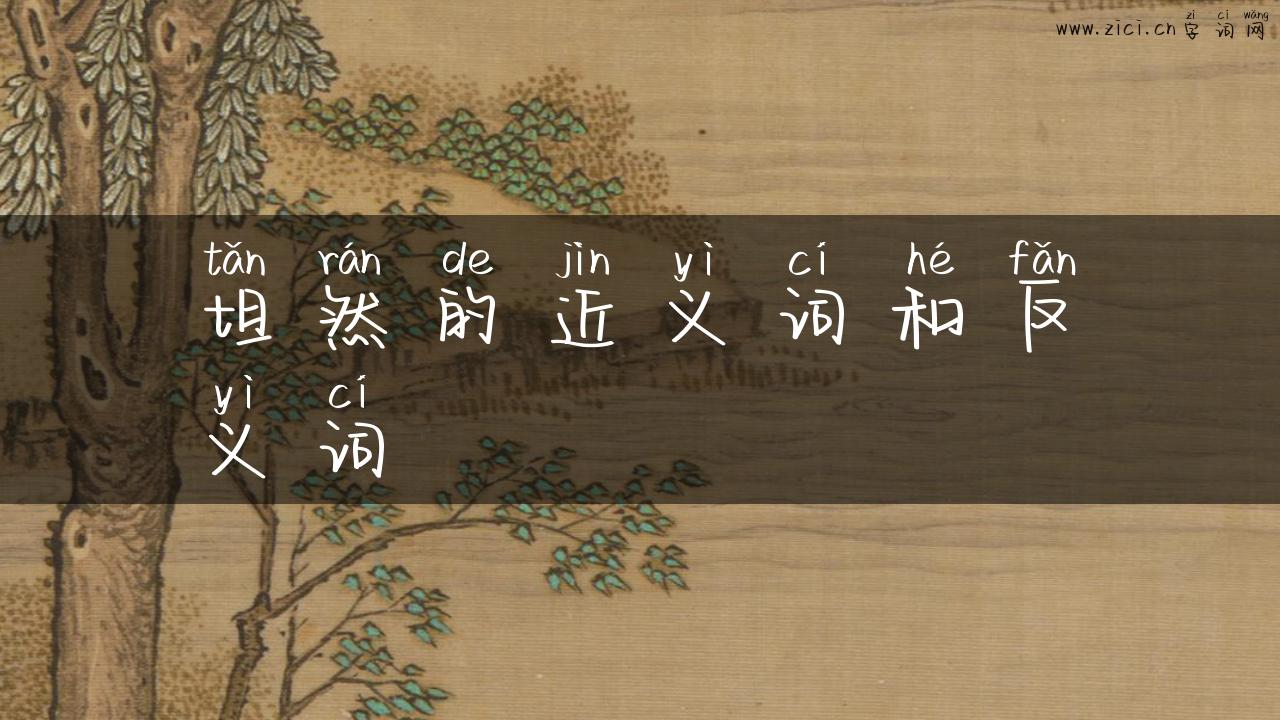 zì cí wǎng
www.zici.cn 字 词 网
tǎn rán de jìn yì cí hé fǎn
坦 然 的 近 义 词 和 反
yì cí
义 词